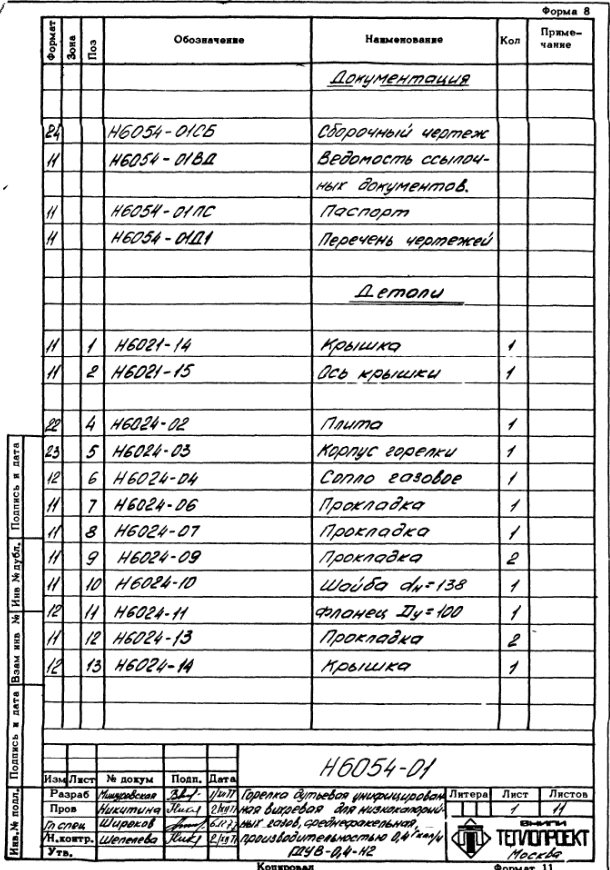 Форма 8
Формат Зона Поз Обозначение Наименование Кол Приме-
чание
Документация
24 Н6054-01СБ Сборочный чертеж
11 Н6054-01ВД Ведомость ссылоч-
ных документов.
11 Н6054-01ПС Паспорт
11 Н6054-01Д1 Перечень чертежей
Детали
11 1 Н6021-14 Крышка 1
11 2 Н6021-15 Ось крышки 1
22 4 Н6024-02 Плита 1
23 5 Н6024-03 Корпус горелки 1
12 6 Н6024-04 Сопло газовое 1
11 7 Н6024-06 Прокладка 1
11 8 Н6024-07 Прокладка 1
11 9 Н6024-09 Прокладка 2
11 10 Н6024-10 Шайба dн=138 1
12 11 Н6024-11 Фланец Ду=100 1
11 12 Н6024-13 Прокладка 2
12 13 Н6024-14 Крышка 1
Подпись и дата
Инв № дубл.
Взам инв №
Подпись и дата
Инв.№ подл.
Н6054-01
Изм Лист № докум Подп. Дата
Разраб
Пров Никитина
Гл спец Широков
Н.контр. Шепелева
Утв.
Горелка дутьевая унифицирован
ная вихревая для низкокалорий
ных газов, среднефакельная,
производительностью 0,4 Гкал/ч
ГДУВ-0,4-Н2
Литера Лист Листов
1 11
ВНИПИ
ТЕПЛОПРОЕКТ
Москва
Копировал Формат 11